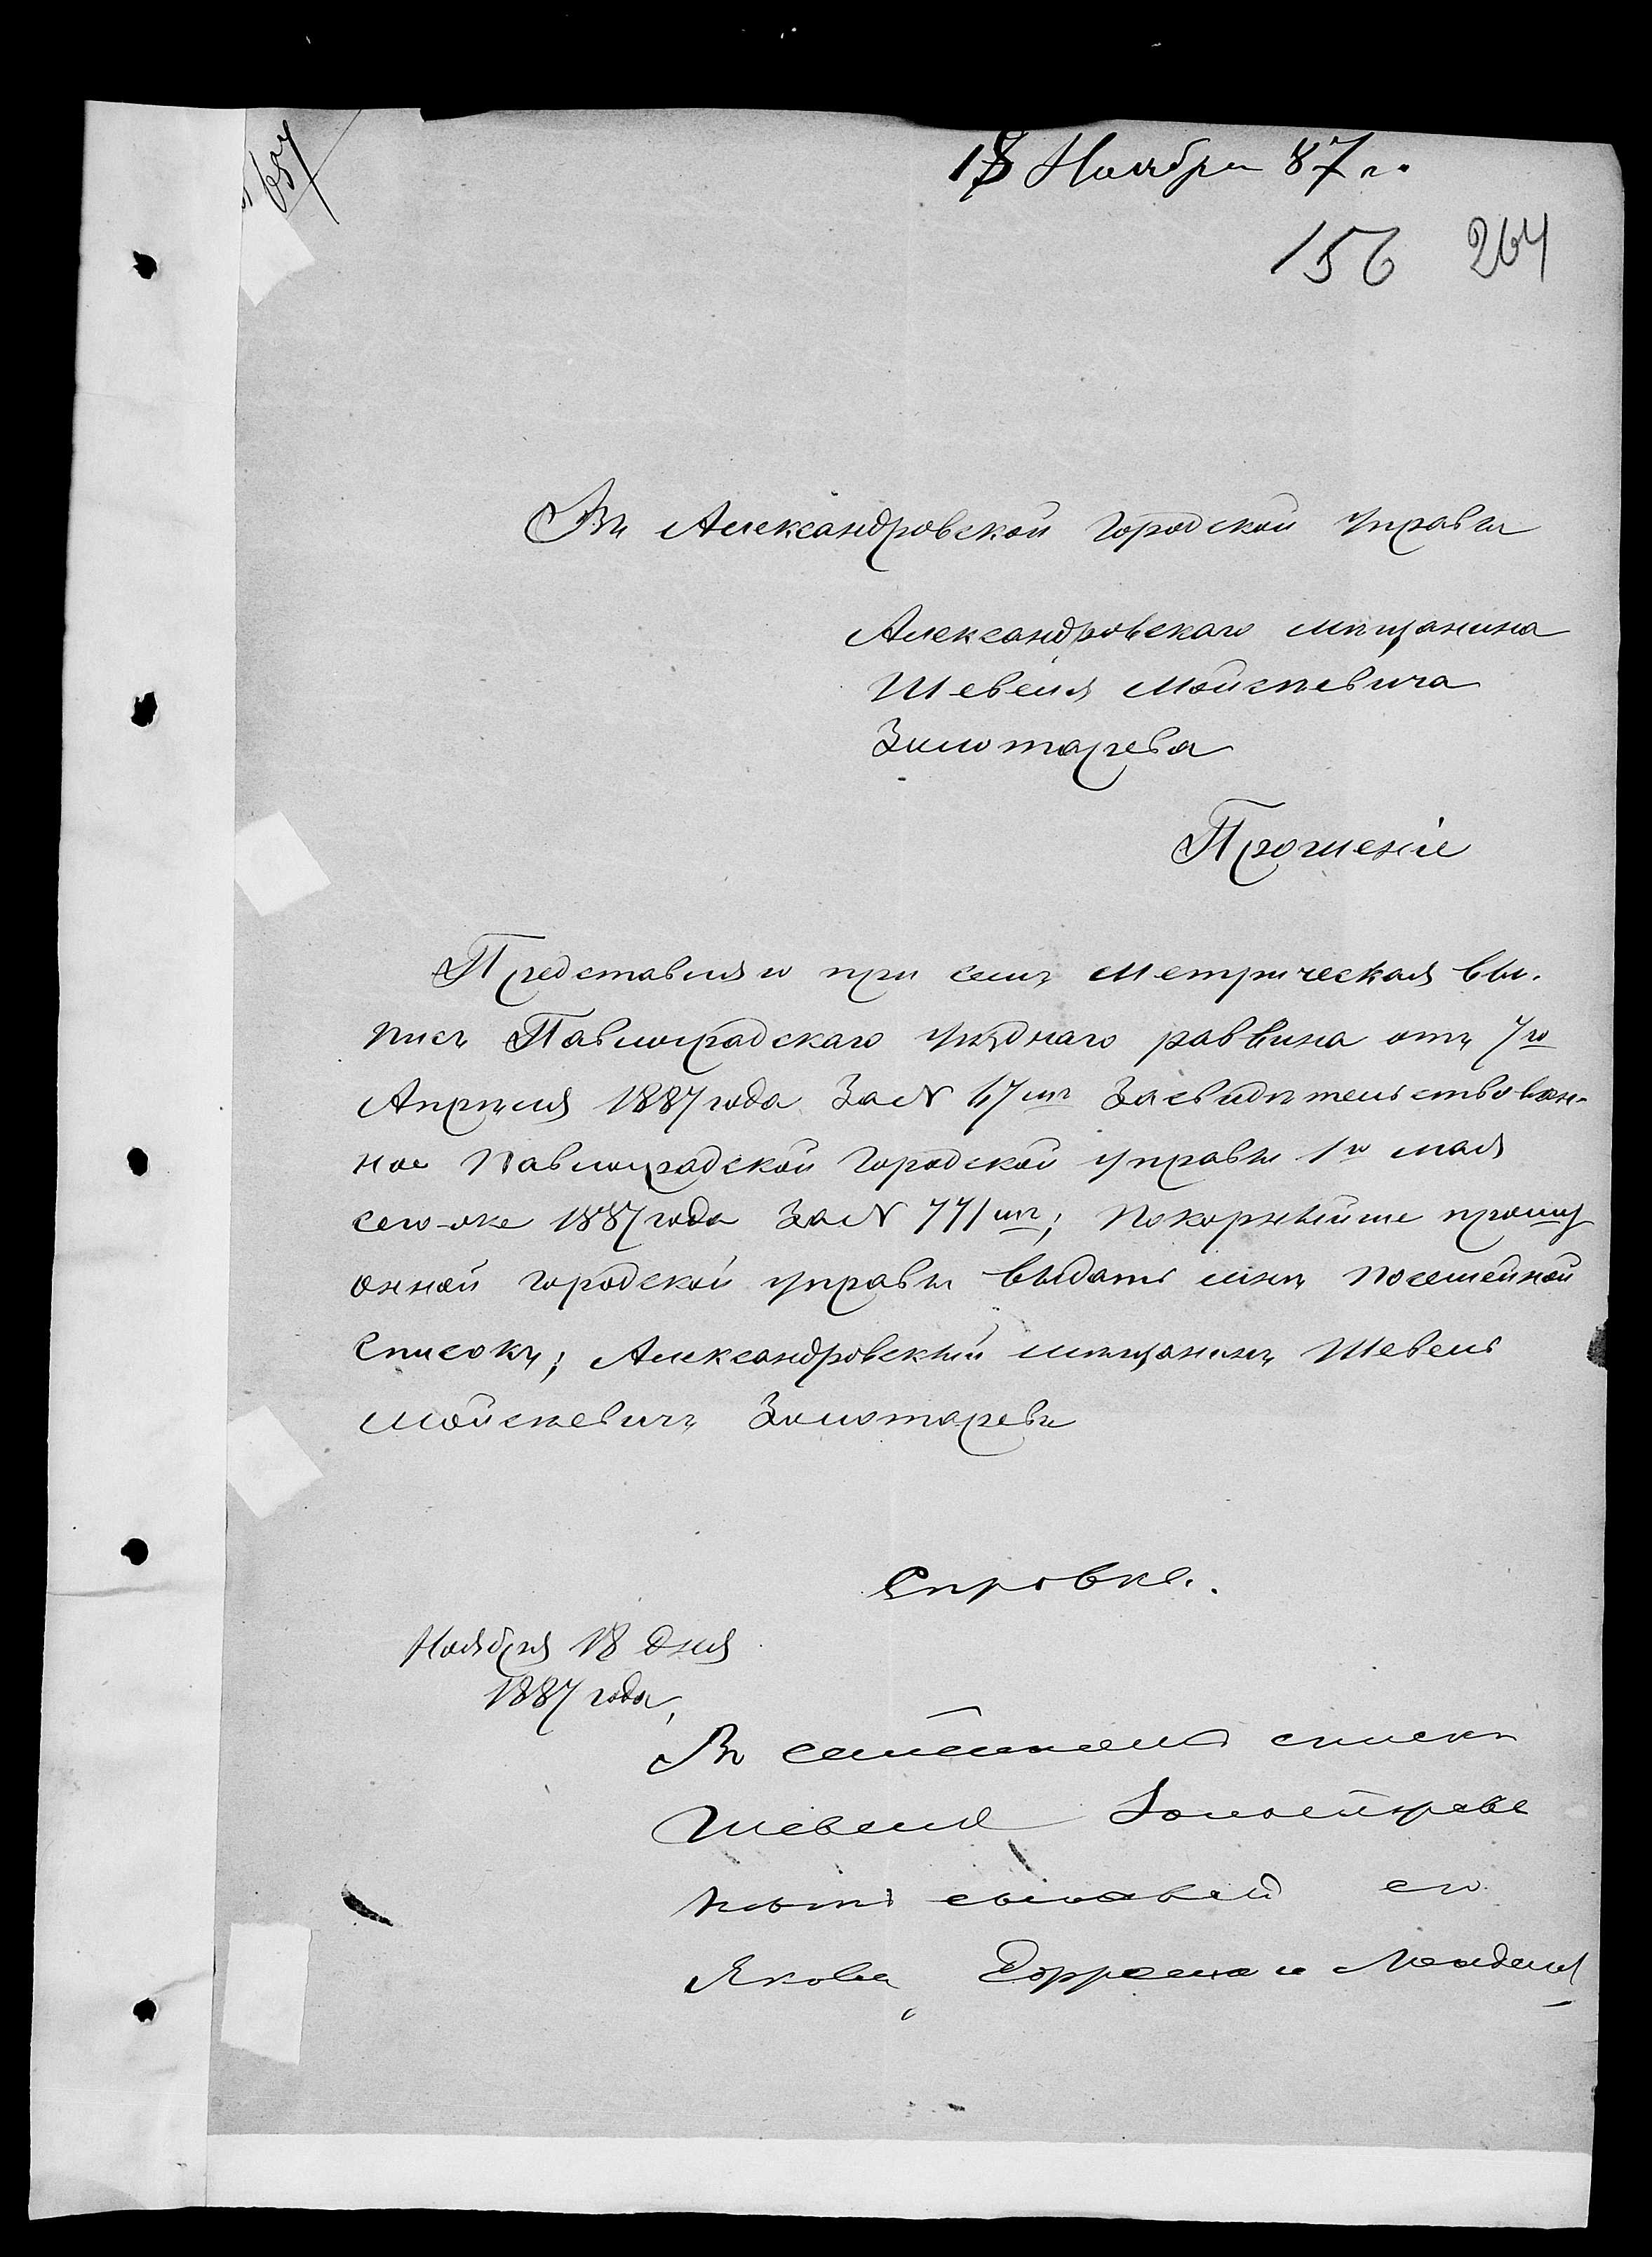 657
18 Ноября 87 г.
156 264
Въ Александровской городской управы
Александровскаго мѣщанина
Шевеля Мойсѣевича
Золотарева
Прошеніе
Представляю при семъ метрическая вы-
пись Павлоградскаго уѣзднаго раввина отъ 7го
Апрѣля 1887 года За № 47мъ Засвидѣтельствован-
ное Павлоградской городской управы 1го мая
сего-же 1887 года За № 771мъ; Покорнѣйше прошу
оной городской управы выдать мнѣ посемейной
Списокъ; Александровскій мѣщанинъ Шевель
Мойсѣевичъ Золотаревъ
Справка.
Ноября 18 дня
1887 года,
Въ семейномъ списке
Шевеля Золотарева
нѣтъ сыновей его
Якова, Еффроима и Менделя